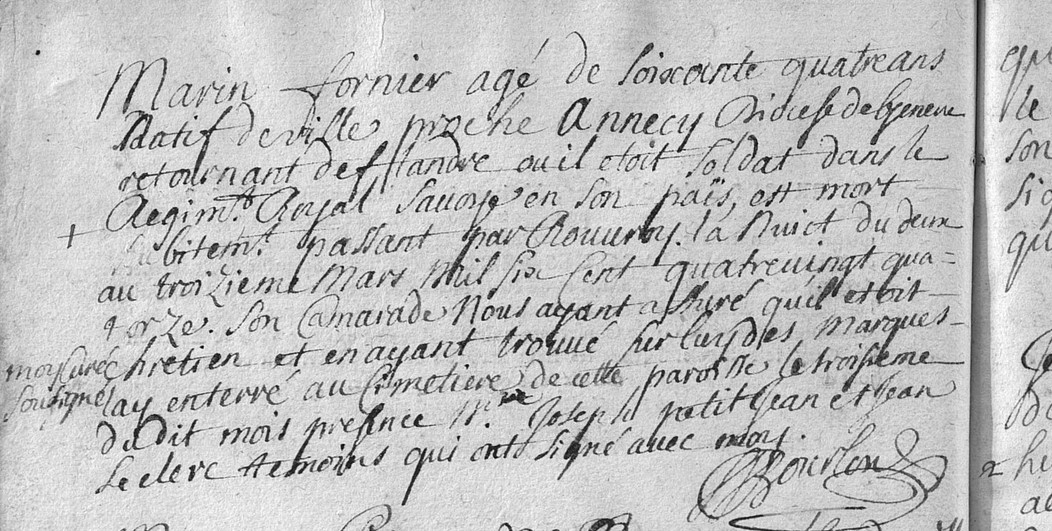 Marin fornier agé de soixante quatre ans
Natif de ville proche Annecy Diocese de Geneve
retournant de fflandre ou il etoit soldat dans le
Regimt. Royal Savoye en son païs, est mort
subitemt. passant par Rouuroy. la Nuict du deux
au troizieme Mars Mil six cent quatreuingt qua-
torze. son Camarade Nous ayant assuré quil etoit
chretien et en ayant trouué sur luy des marques
moy curé
soussigné
lay enterré au Cimetiere de cette paroisse le troisieme
du dit mois presence Joseph petit Jean et Jean
Leclerc temoins qui ont signé avec moy.